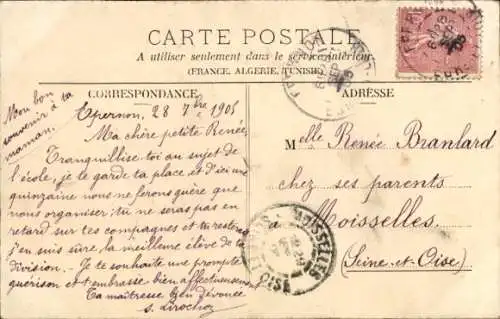 CARTE POSTALE
A utiliser seulement dans le service intérieur
(FRANCE, ALGERIE, TUNISIE)
CORRESPONDANCE
ADRESSE
Mon bon
souvenir à ta
maman.
Epernon, 28 7bre 1905
Ma chère petite Renée,
Tranquillise-toi au sujet de
l'école, je te garde ta place et d'ici une
quinzaine nous ne ferons guère que
nous organiser, tu ne seras pas en
retard sur tes compagnes et tu resteras
j'en suis sûre la meilleure élève de ta
division. Je te souhaite une prompte
guérison et t'embrasse bien affectueusement
Ta maîtresse bien dévouée
Melle Renée Branlard
chez ses parents
à Moisselles
(Seine-et-Oise)
MOISSELLES
OISE